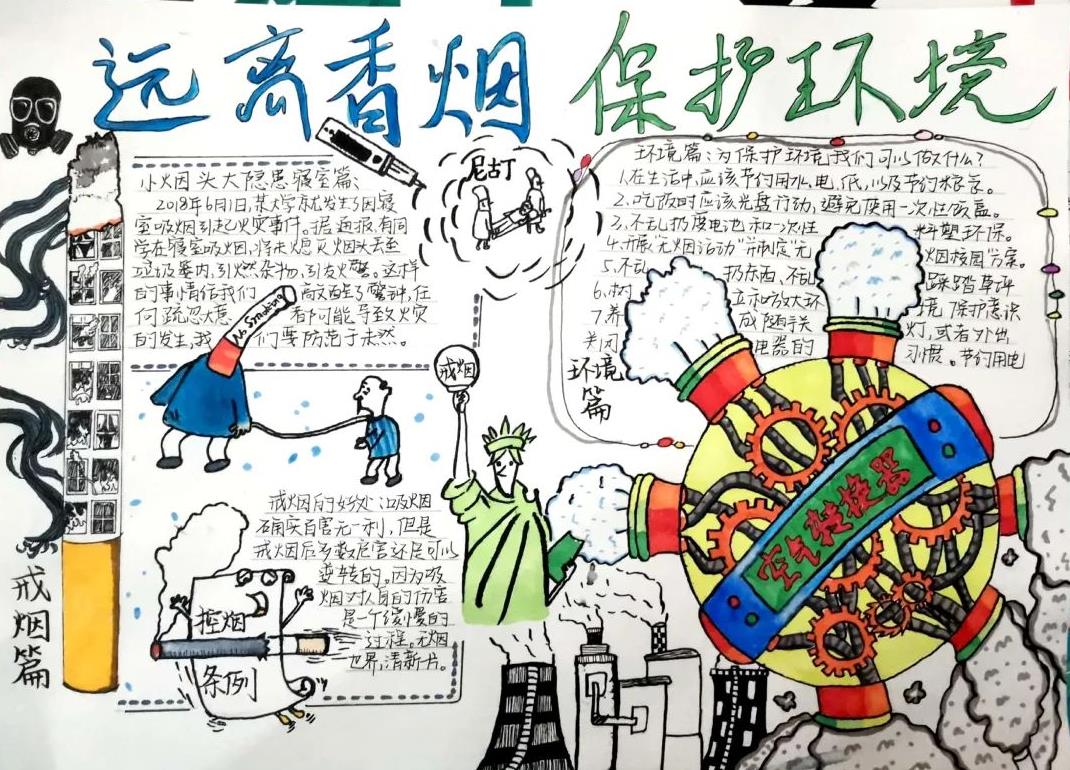 远离香烟 保护环境
小烟头大隐患寝室篇:
2018年6月1日,某大学就发生了因寝
室吸烟引起火灾事件。据通报,有同
学在寝室吸烟,将未熄灭烟头丢至
垃圾篓内,引燃杂物,引发火警。这样
的事情给我们 敲醒了警钟,任
何疏忽大意 都可能导致火灾
的发生,我 们要防范于未然。
No Smoking
尼古丁
环境篇:为保护环境,我们可以做什么?
1.在生活中,应该节约用水、电、纸,以及节约粮食。
2.吃饭时应该光盘行动,避免使用一次性饭盒。
3.不乱扔废电池和一次性 料塑环保。
4.开展“无烟活动”,制定“无 烟校园”方案。
5.不乱 扔东西、不乱 踩踏草坪
6.树 立和放大环 境 保护意识
7.养 成随手关 灯,或者外出
关风 电器的 习惯。节约用电
环境篇
戒烟
戒烟篇
戒烟的好处:吸烟
确实百害无一利,但是
戒烟后多数危害还是可以
逆转的。因为吸
烟对人身的伤害
是一个缓慢的
过程。无烟
世界,清新一片。
控烟
条例
空气转换器